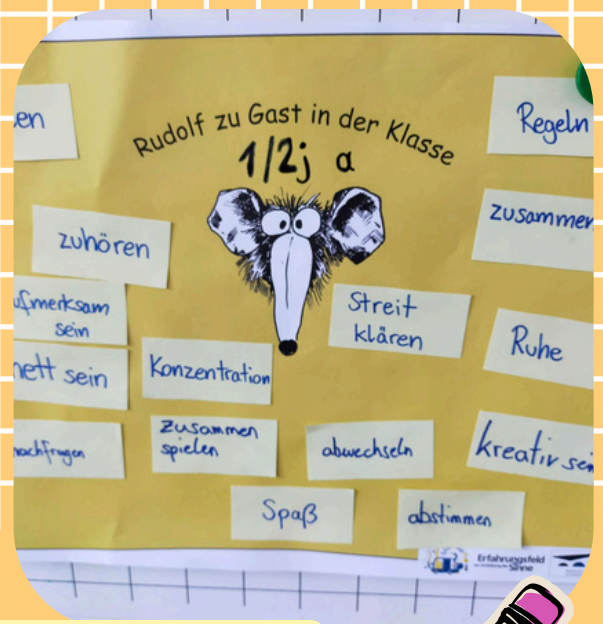 Rudolf zu Gast in der Klasse
1/2j a
en
Regeln
zusammen
zuhören
ufmerksam
sein
Streit
klären
Ruhe
nett sein
Konzentration
zusammen
spielen
nachfragen
abwechseln
kreativ sein
Spaß
abstimmen
Erfahrungsfeld
Sinne